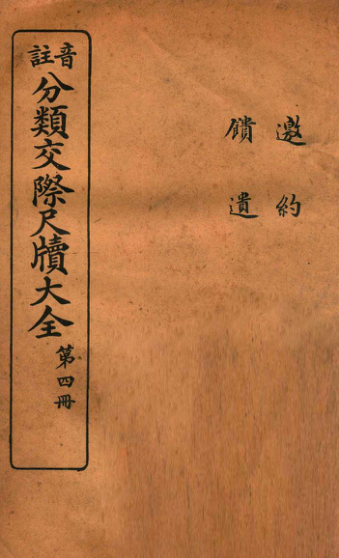 邀約
饋遺
音註分類交際尺牘大全
第四冊